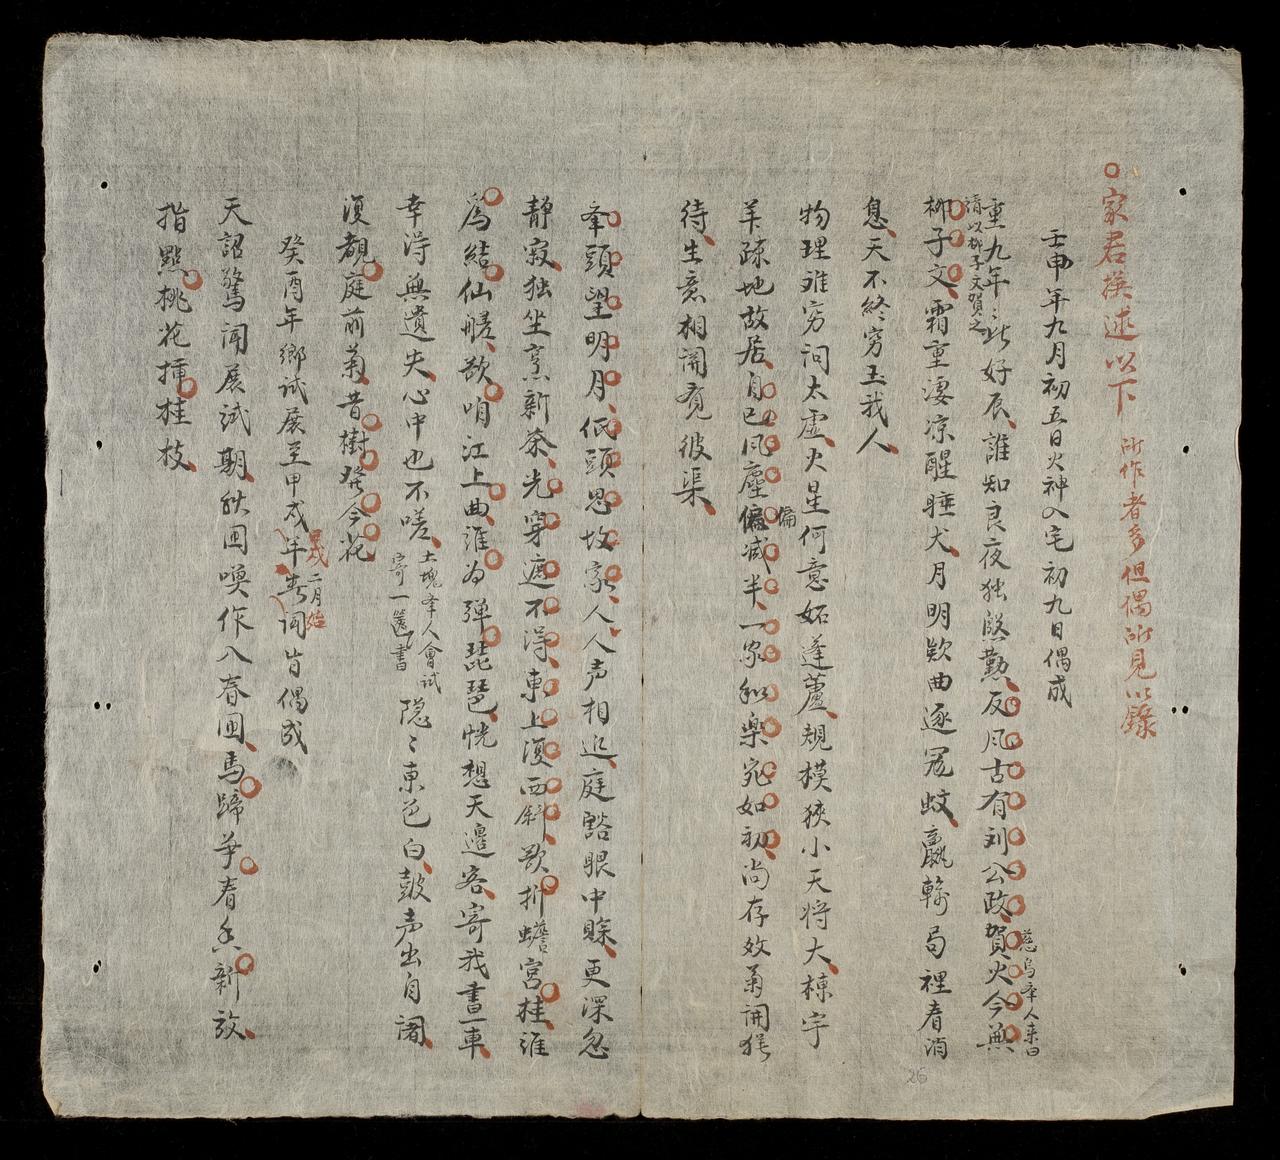 家君撰述以下 所作者多但偶所見以錄
壬申年九月初五日火神入宅初九日偶成
重九年〻此好辰誰知良夜独慇勤反风古有刘公政賀火今無
慈烏举人来曰
請以柳子文賀之
柳子文霜重淒凉醒睡犬月明欵曲逐冤蚊贏輸局裡看消
息天不終穷玉我人
物理难穷问太虚火星何意妬蓬蘆規模狹小天将大棟宇
羊疎地故居自己风塵偏减半一家和楽宛如初尚存效勇開猴
偏
待生意相関覓彼渠
峯頭望明月低頭思故家人人声相近庭豁眼中賖更深忽
静寂独坐烹新茶光穿遮不淂東上復西斜欲折蟾宮桂谁
為結仙艖欲咱江上曲谁为弹琵琶恍想天邊客寄我書一車
幸淂無遺失心中也不嗟 土塊峯人會試寄一篋書 隐〻东色白鼓声出自譇
復覩庭前菊昔樹癸今花
癸酉年鄉试展至甲戍年二月始考词旨偶成
天詔驚闻展試期秋囲喚作入春囲馬蹄争春香新放
指點桃花挿桂枝
26